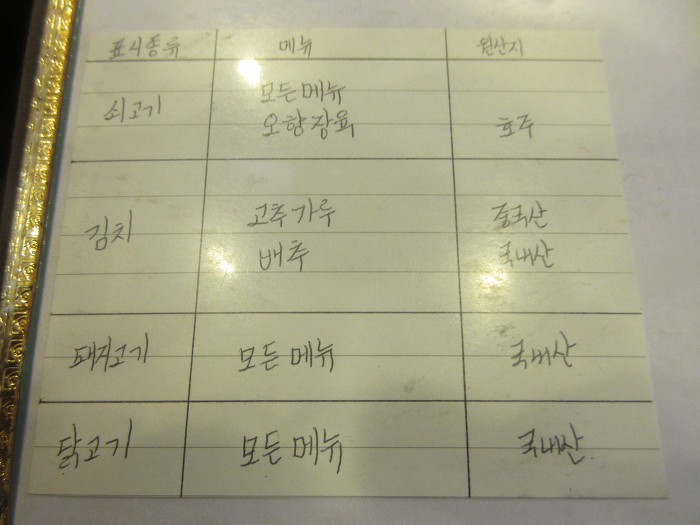 표시종류 메뉴 원산지
모든메뉴
쇠고기 오향장육 호주
고추가루 중국산
김치 배추 국내산
돼지고기 모든 메뉴 국내산
닭고기 모든 메뉴 국내산.